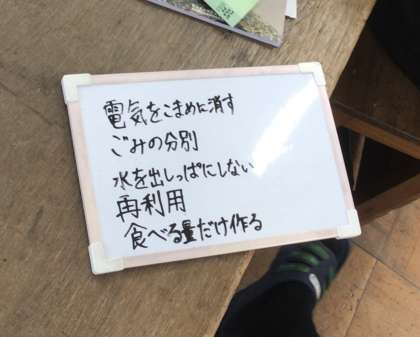 電気をこまめに消す
ごみの分別
水を出しっぱにしない
再利用
食べる量だけ作る